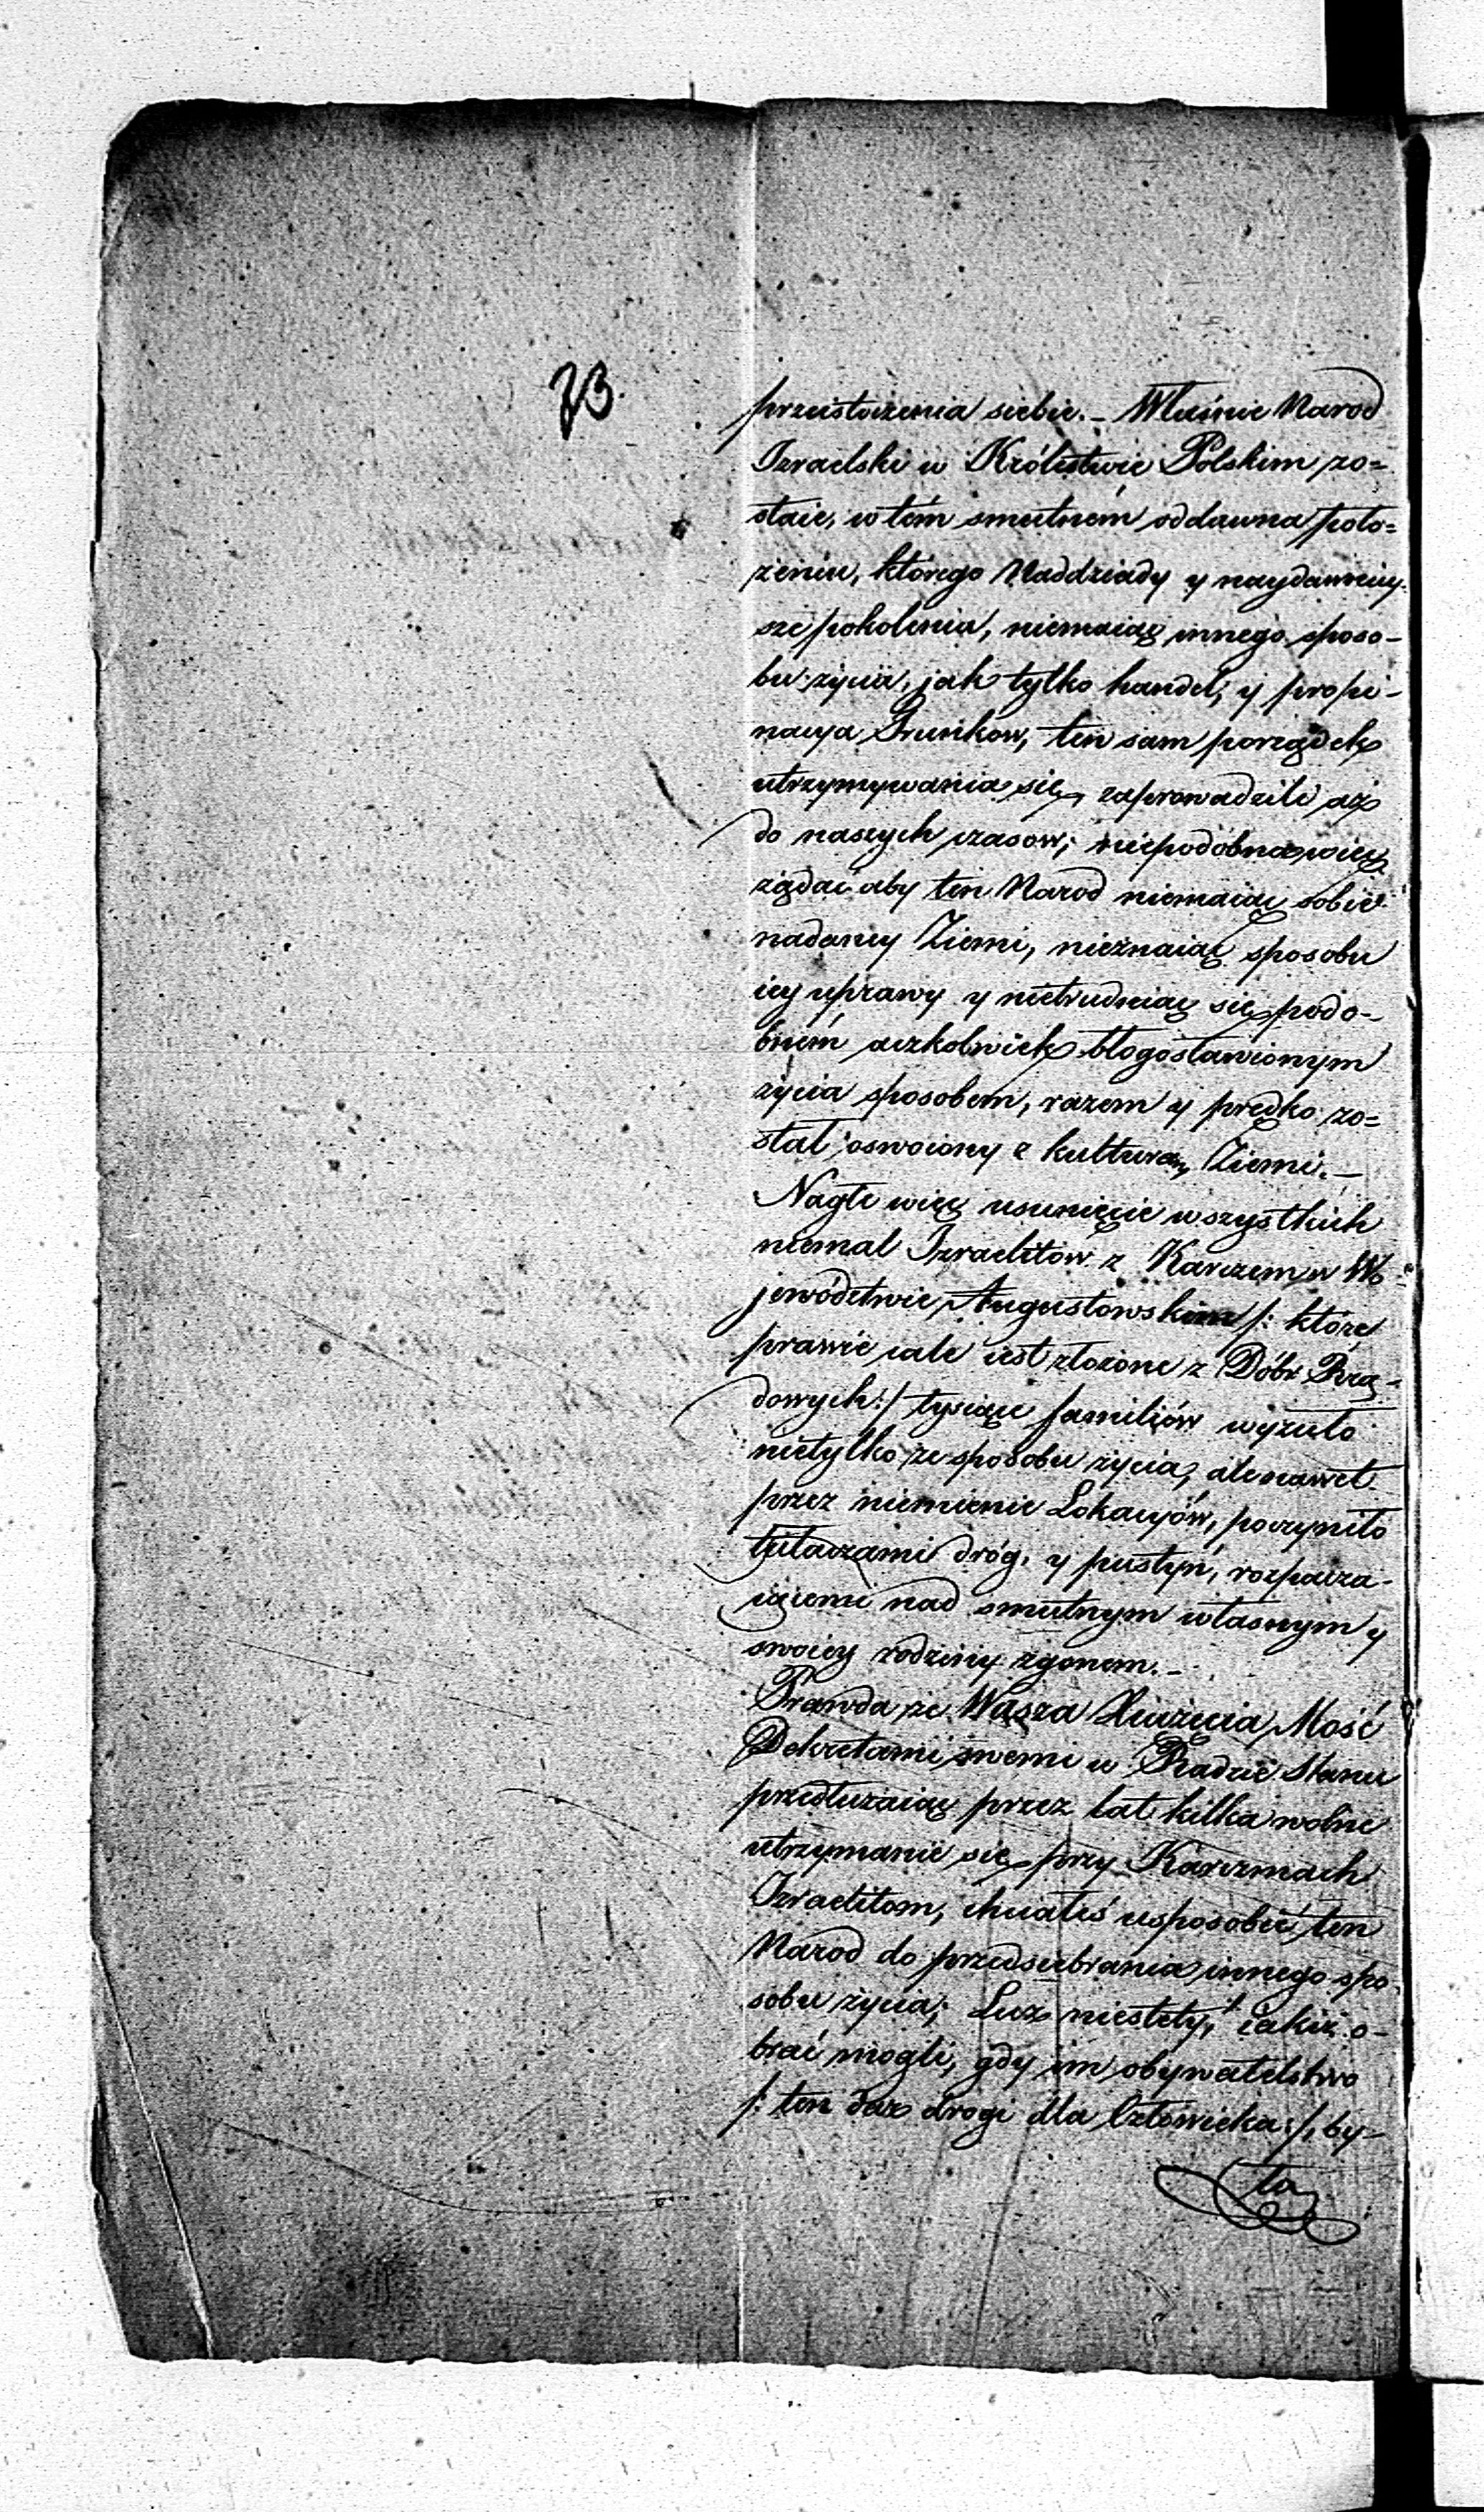 73.
przeistoczenia siebie. – Właśnie Narod
Izraelski w Królestwie Polskim zo=
staie, w tém smutném oddawna poło=
żeniu, którego Naddziady y naydawniey=
sze pokolenia, niemaiąc innego sposo-
bu życia, jak tylko handel, y propi-
nacya Trunkow, ten sam porządek
utrzymywania się, zaprowadzili aż
do naszych czasow; niepodobna więc
żądać aby ten Narod niemaiąc sobie
nadaney Ziemi, nieznaiąc sposobu
iey uprawy y nietrudniąc się podo-
bném aczkolwiek błogosławionym
życia sposobem, razem y prędko zo=
stał oswoiony z kulturą Ziemi. –
Nagłe więc usunięcie wszystkich
niemal Izraelitów z Karczem w Wo=
jewództwie Augustowskim /: które
prawie całe iest złożone z Dóbr Rzą-
dowych :/ tysiące familiów wyzuło
nietylko ze sposobu życia, ale nawet
przez niemienie Lokacyów, poczyniło
tułaczami dróg, y pustyń, rozpacza-
iącemi nad smutnym własnym y
swoiey rodziny zgonem. –
Prawda że Wasza Xiążęcia Mość
Dekretami swemi w Radzie Stanu
przedłużaiąc przez lat kilka wolne
utrzymanie się przy Karczmach
Izraelitom, chciałeś usposobić ten
Narod do przedsiebrania innego spo
sobu życia; Lecz niestety, iakiż o-
brać mogli, gdy im obywatelstwo
/: ten dar drogi dla Człowieka :/, by-
ło